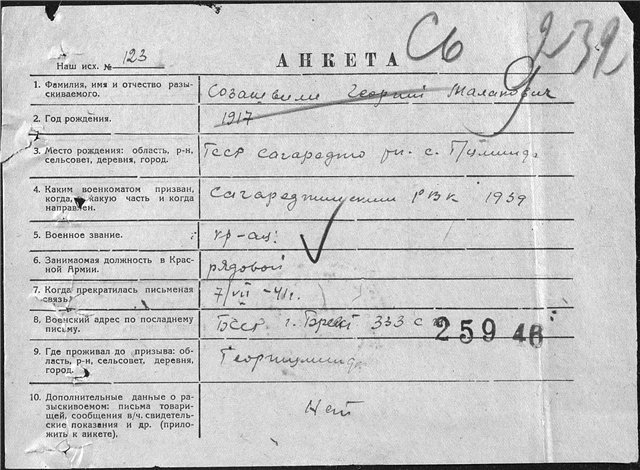 Наш исх. № 123
АНКЕТА
Сб
232
1. Фамилия, имя и отчество разыскиваемого.
Созашвили Георгий Маланович
2. Год рождения.
1917
3. Место рождения: область, р-н, сельсовет, деревня, город.
Гсср сагареджо рн. с.
4. Каким военкоматом призван, когда, в какую часть и когда направлен.
Сагареджинским РВК 1939
5. Военное звание.
кр-ац.
6. Занимаемая должность в Красной Армии.
рядовой
7. Когда прекратилась письменная связь.
7/VII-41г.
8. Воинский адрес по последнему письму.
Бсср. г. Брест 333 с
259 46
9. Где проживал до призыва: область, р-н, сельсовет, деревня, город.
Георгицминда
10. Дополнительные данные о разыскиваемом: письма товарищей, сообщения в/ч. свидетельские показания и др. (приложить к анкете).
Нет